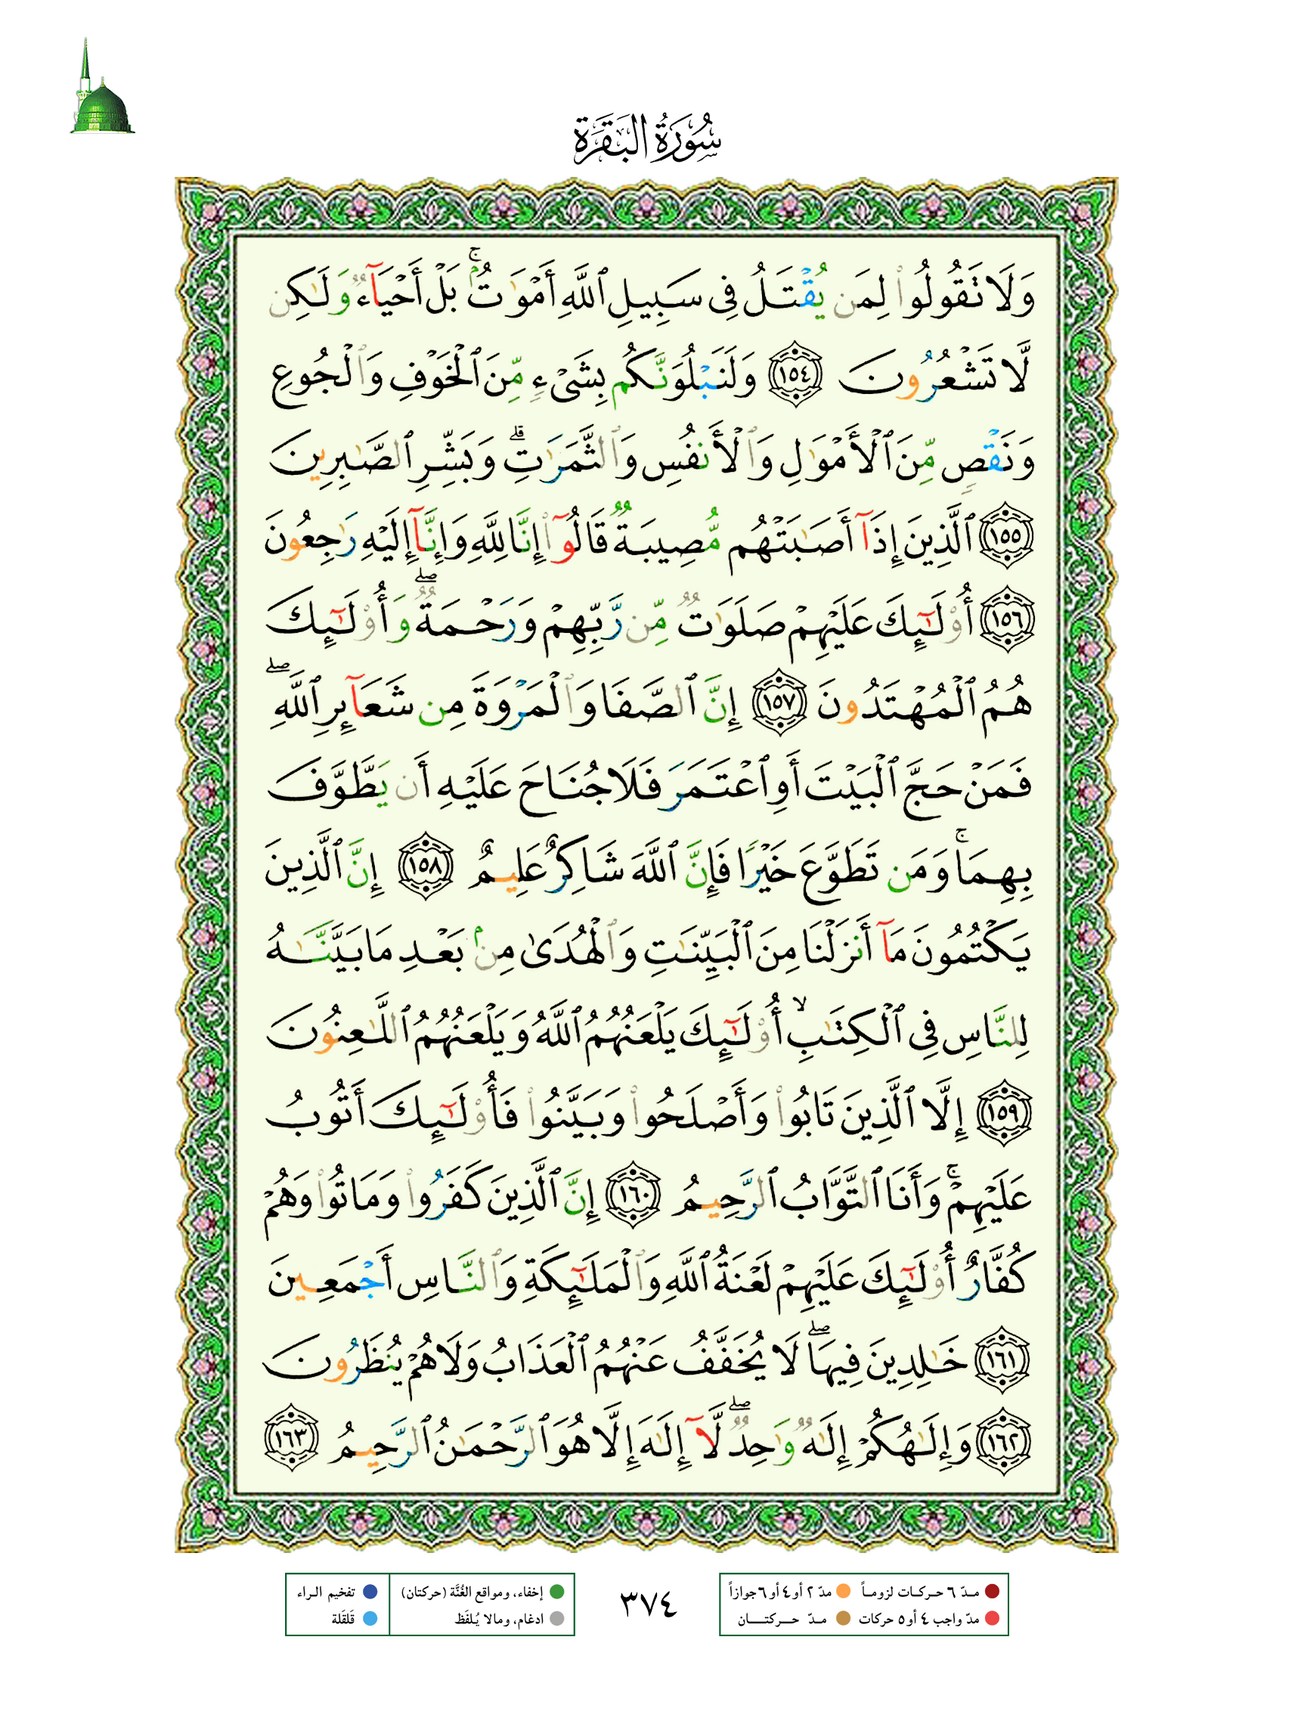 سُورَةُ البَقَرَة
وَلَا تَقُولُوا۟ لِمَن يُقْتَلُ فِى سَبِيلِ ٱللَّهِ أَمْوَٰتٌۢ ۚ بَلْ أَحْيَآءٌ وَلَـٰكِن
لَّا تَشْعُرُونَ ١٥٤ وَلَنَبْلُوَنَّكُم بِشَىْءٍ مِّنَ ٱلْخَوْفِ وَٱلْجُوعِ
وَنَقْصٍ مِّنَ ٱلْأَمْوَٰلِ وَٱلْأَنفُسِ وَٱلثَّمَرَٰتِ ۗ وَبَشِّرِ ٱلصَّـٰبِرِينَ
١٥٥ ٱلَّذِينَ إِذَآ أَصَـٰبَتْهُم مُّصِيبَةٌ قَالُوٓا۟ إِنَّا لِلَّهِ وَإِنَّآ إِلَيْهِ رَٰجِعُونَ
١٥٦ أُو۟لَـٰٓئِكَ عَلَيْهِمْ صَلَوَٰتٌ مِّن رَّبِّهِمْ وَرَحْمَةٌ ۖ وَأُو۟لَـٰٓئِكَ
هُمُ ٱلْمُهْتَدُونَ ١٥٧ إِنَّ ٱلصَّفَا وَٱلْمَرْوَةَ مِن شَعَآئِرِ ٱللَّهِ ۖ
فَمَنْ حَجَّ ٱلْبَيْتَ أَوِ ٱعْتَمَرَ فَلَا جُنَاحَ عَلَيْهِ أَن يَطَّوَّفَ
بِهِمَا ۚ وَمَن تَطَوَّعَ خَيْرًا فَإِنَّ ٱللَّهَ شَاكِرٌ عَلِيمٌ ١٥٨ إِنَّ ٱلَّذِينَ
يَكْتُمُونَ مَآ أَنزَلْنَا مِنَ ٱلْبَيِّنَـٰتِ وَٱلْهُدَىٰ مِنۢ بَعْدِ مَا بَيَّنَّـٰهُ
لِلنَّاسِ فِى ٱلْكِتَـٰبِ ۙ أُو۟لَـٰٓئِكَ يَلْعَنُهُمُ ٱللَّهُ وَيَلْعَنُهُمُ ٱللَّـٰعِنُونَ
١٥٩ إِلَّا ٱلَّذِينَ تَابُوا۟ وَأَصْلَحُوا۟ وَبَيَّنُوا۟ فَأُو۟لَـٰٓئِكَ أَتُوبُ
عَلَيْهِمْ ۚ وَأَنَا ٱلتَّوَّابُ ٱلرَّحِيمُ ١٦٠ إِنَّ ٱلَّذِينَ كَفَرُوا۟ وَمَاتُوا۟ وَهُمْ
كُفَّارٌ أُو۟لَـٰٓئِكَ عَلَيْهِمْ لَعْنَةُ ٱللَّهِ وَٱلْمَلَـٰٓئِكَةِ وَٱلنَّاسِ أَجْمَعِينَ
١٦١ خَـٰلِدِينَ فِيهَا ۖ لَا يُخَفَّفُ عَنْهُمُ ٱلْعَذَابُ وَلَا هُمْ يُنظَرُونَ
١٦٢ وَإِلَـٰهُكُمْ إِلَـٰهٌ وَٰحِدٌ ۖ لَّآ إِلَـٰهَ إِلَّا هُوَ ٱلرَّحْمَـٰنُ ٱلرَّحِيمُ ١٦٣
مـدّ ٦ حركات لزومـاً مدّ ٢ أو ٤ أو ٦ جوازاً
مدّ واجب ٤ أو ٥ حركات مـدّ حـركتـان
٣٧٤
إخفاء، ومواقع الغُنَّة (حركتان) تفخيم الـراء
ادغام، ومالا يُـلفَظ قَلقَلة